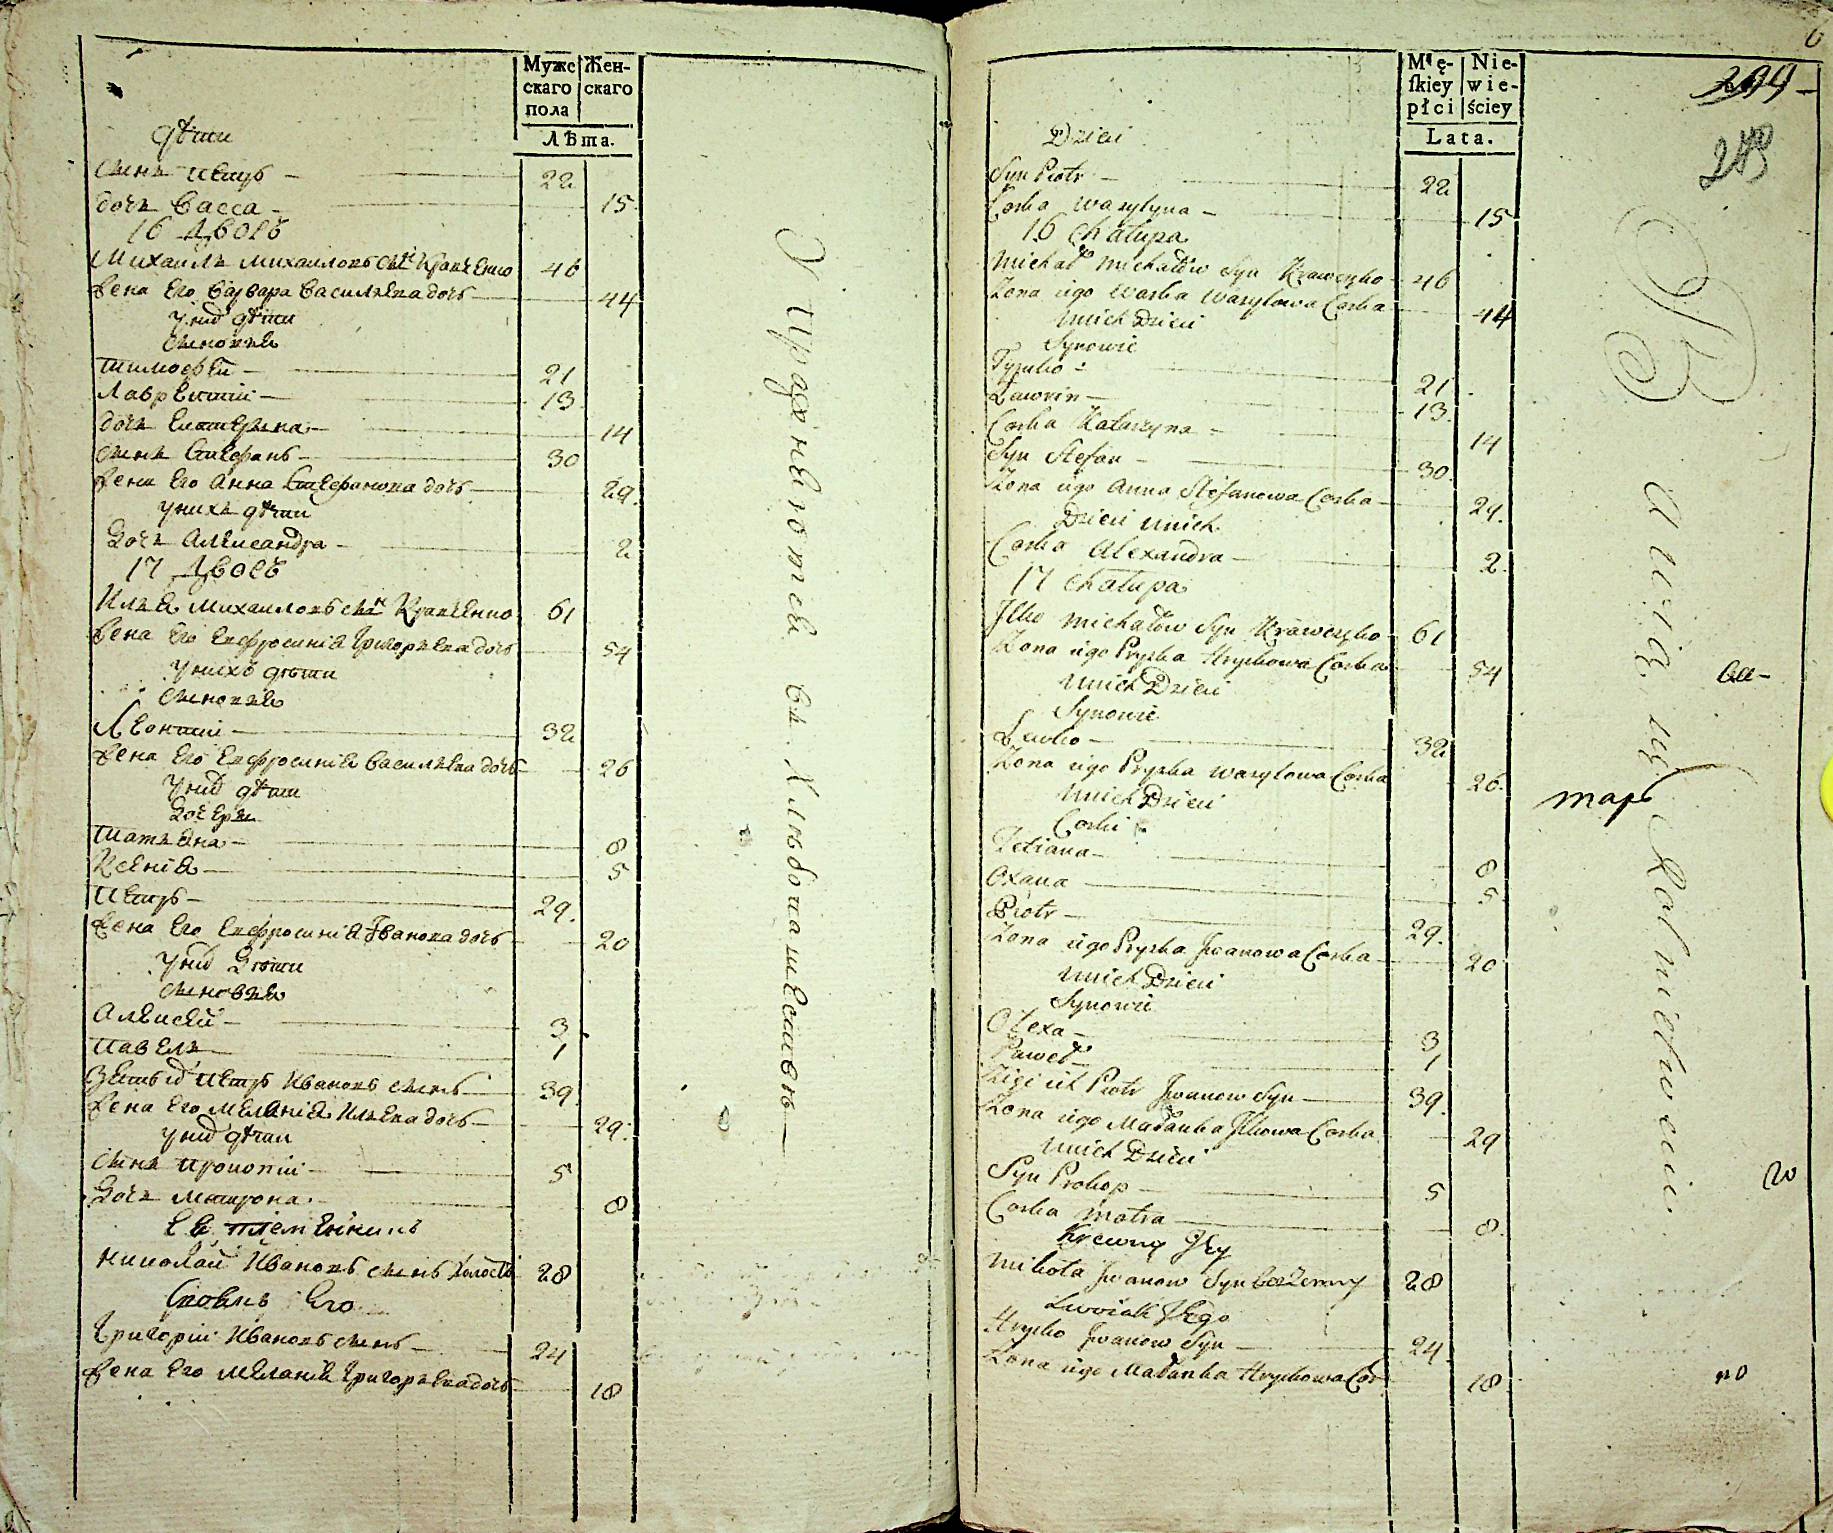 Муже Жен-
скаго скаго
пола
Лѣта.
дѣти
сынъ Петръ 22
дочь Васса 15
16 Дворъ
Михаилъ Михайловъ сынъ Кравченко 46
Жена его Варвара Васильева дочь 44
У нихъ дѣти
сыновья
Тимофей 21
Лаврентій 13
дочь Екатерина 14
сынъ Стефанъ 30
Жена его Анна Стефанова дочь 29.
У нихъ дѣти
Дочь Александра 2
17 Дворъ
Илья Михайловъ сынъ Кравченко 61
Жена его Ефросинія Григорьева дочь 54
У нихъ дѣти
сыновья
Леонтій 32
Жена его Ефросинія Васильева дочь 26
У нихъ дѣти
Дочери
Татьяна 8
Ксенія 5
Петръ 29.
Жена его Ефросинія Иванова дочь 20
У нихъ Дѣти
сыновья
Алексей 3
Павелъ 1
Зять ихъ Петръ Ивановъ сынъ 39.
Жена его Меланія Ильева дочь 29.
У нихъ дѣти
сынъ Прокопій 5
Дочь Матрона 8
Николай Ивановъ сынъ холостъ 28
его
Григорій Ивановъ сынъ 24
Жена его Меланія Григорьева дочь 18
Упражняются въ хлѣбопашествѣ
6
Mę- Nie-
skiey wie-
płci ściey
Lata.
Dzieci
Syn Piotr 22
Corka Wasylyna 15
16 Chałupa
Michał Michałow Syn Krawczęko 46
Zona iego Warka Wasylowa Corka 44
Unich Dzieci
Synowie
Tymko 21
Ławrin 13.
Corka Katarzyna 14
Syn Stefan 30.
Zona iego Anna Stefanowa Corka 29.
Dzieci unich
Corka Alexandra 2.
17 Chałupa
Ilko Michałow Syn Krawczęko 61
Zona iego Pryska Hryckowa Corka 54
Unich Dzieci
Synowie
Lewko 32
Zona iego Pryska Wasylowa Corka 26.
Unich Dzieci
Corki
Tetiana 8
Oxana 5
Piotr 29.
Zona iego Pryska Jwanowa Corka 20
Unich Dzieci
Synowie
Olexa 3
Paweł 1
Zięć ich Piotr Jwanow Syn 39.
Zona iego Małanka Jlkowa Corka 29
Unich Dzieci
Syn Prokop 5
Corka Motra 8.
Krewny Jey
Mikoła Jwanow Syn bezżenny 28
Hrycko Jwanow Syn 24
Zona iego Małanka Hryckowa Cor 18